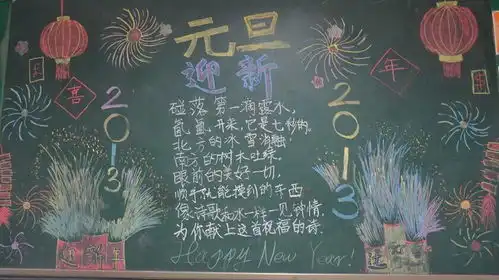 元旦
迎新
2013
2013
喜
年
碰落第一滴露水,
氤氲开来,它是七秒钟。
北方的冰雪消融
南方的树木吐绿。
眼前的美好一切,
顺手就能摸到的东西
像诗歌和冰一样一见钟情。
为你献上这首祝福的诗.
Happy New Year!
迎新年
迎新年